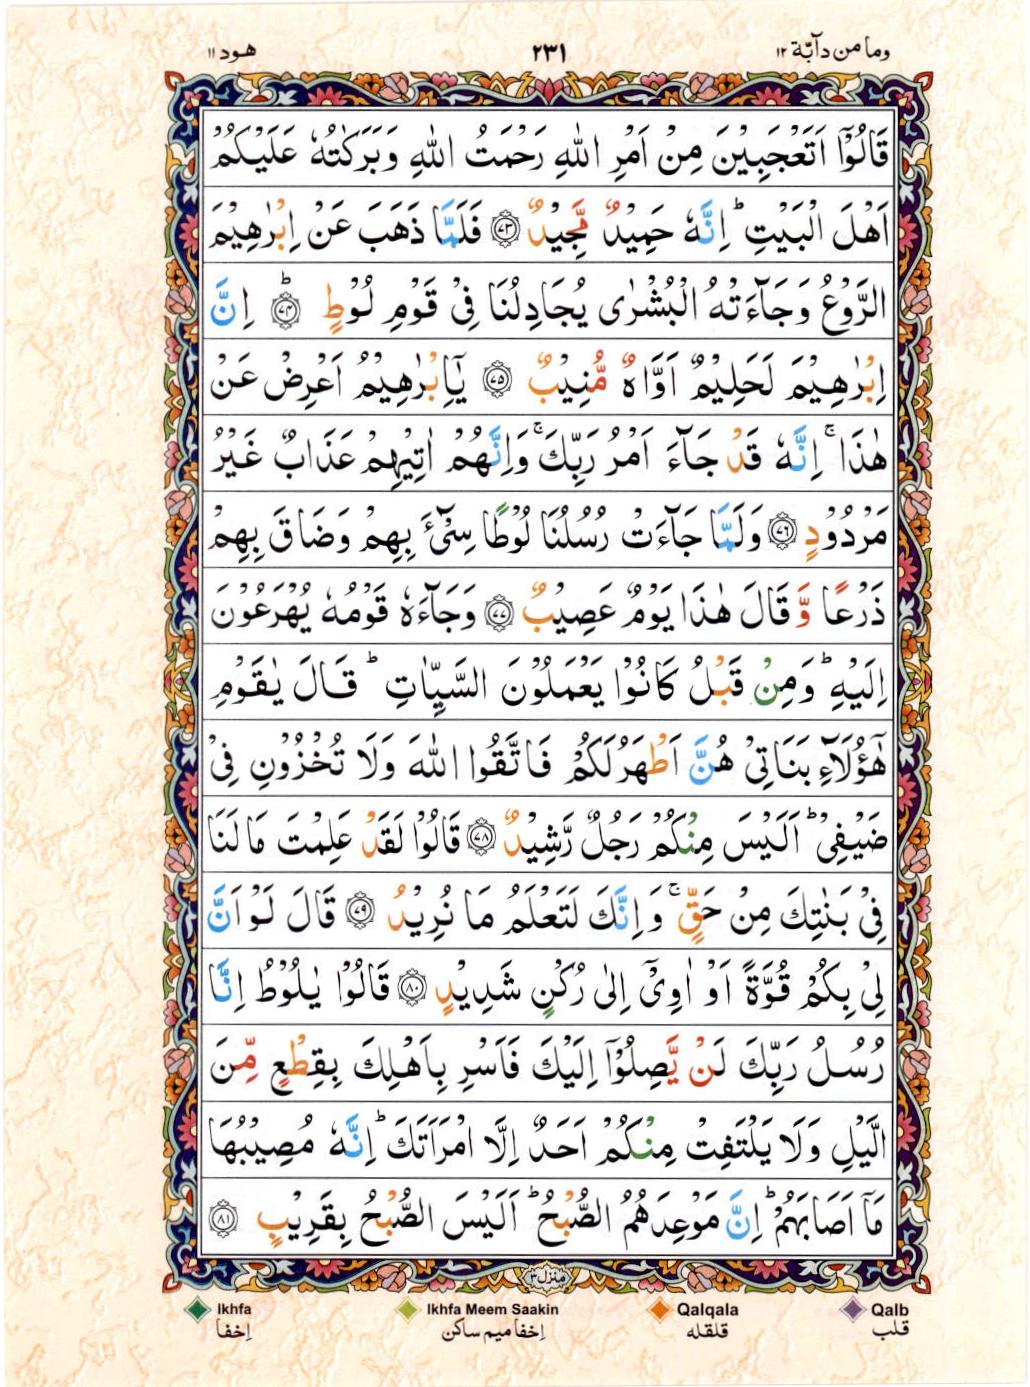 وما من دآبّة ١٢
٢٣١
هود ١١
قَالُوْۤا اَتَعْجَبِيْنَ مِنْ اَمْرِ اللّٰهِ رَحْمَتُ اللّٰهِ وَبَرَكٰتُهٗ عَلَيْكُمْ
اَهْلَ الْبَيْتِ ؕ اِنَّهٗ حَمِيْدٌ مَّجِيْدٌ ﴿۷۳﴾ فَلَمَّا ذَهَبَ عَنْ اِبْرٰهِيْمَ
الرَّوْعُ وَجَآءَتْهُ الْبُشْرٰى يُجَادِلُنَا فِيْ قَوْمِ لُوْطٍ ؕ ﴿۷۴﴾ اِنَّ
اِبْرٰهِيْمَ لَحَلِيْمٌ اَوَّاهٌ مُّنِيْبٌ ﴿۷۵﴾ يٰۤاِبْرٰهِيْمُ اَعْرِضْ عَنْ
هٰذَا ۚ اِنَّهٗ قَدْ جَآءَ اَمْرُ رَبِّكَ ۚ وَاِنَّهُمْ اٰتِيْهِمْ عَذَابٌ غَيْرُ
مَرْدُوْدٍ ﴿۷۶﴾ وَلَمَّا جَآءَتْ رُسُلُنَا لُوْطًا سِيْٓءَ بِهِمْ وَضَاقَ بِهِمْ
ذَرْعًا وَّقَالَ هٰذَا يَوْمٌ عَصِيْبٌ ﴿۷۷﴾ وَجَآءَهٗ قَوْمُهٗ يُهْرَعُوْنَ
اِلَيْهِ ؕ وَمِنْ قَبْلُ كَانُوْا يَعْمَلُوْنَ السَّيِّاٰتِ ؕ قَالَ يٰقَوْمِ
هٰٓؤُلَآءِ بَنَاتِيْ هُنَّ اَطْهَرُ لَكُمْ فَاتَّقُوا اللّٰهَ وَلَا تُخْزُوْنِ فِيْ
ضَيْفِيْ ؕ اَلَيْسَ مِنْكُمْ رَجُلٌ رَّشِيْدٌ ﴿۷۸﴾ قَالُوْا لَقَدْ عَلِمْتَ مَا لَنَا
فِيْ بَنٰتِكَ مِنْ حَقٍّ ۚ وَاِنَّكَ لَتَعْلَمُ مَا نُرِيْدُ ﴿۷۹﴾ قَالَ لَوْ اَنَّ
لِيْ بِكُمْ قُوَّةً اَوْ اٰوِيْۤ اِلٰى رُكْنٍ شَدِيْدٍ ﴿۸۰﴾ قَالُوْا يٰلُوْطُ اِنَّا
رُسُلُ رَبِّكَ لَنْ يَّصِلُوْۤا اِلَيْكَ فَاَسْرِ بِاَهْلِكَ بِقِطْعٍ مِّنَ
الَّيْلِ وَلَا يَلْتَفِتْ مِنْكُمْ اَحَدٌ اِلَّا امْرَاَتَكَ ؕ اِنَّهٗ مُصِيْبُهَا
مَاۤ اَصَابَهُمْ ؕ اِنَّ مَوْعِدَهُمُ الصُّبْحُ ؕ اَلَيْسَ الصُّبْحُ بِقَرِيْبٍ ﴿۸۱﴾
منزل ٣
Ikhfa
Ikhfa Meem Saakin
Qalqala
Qalb
إخفا
إخفا ميم ساكن
قلقله
قلب